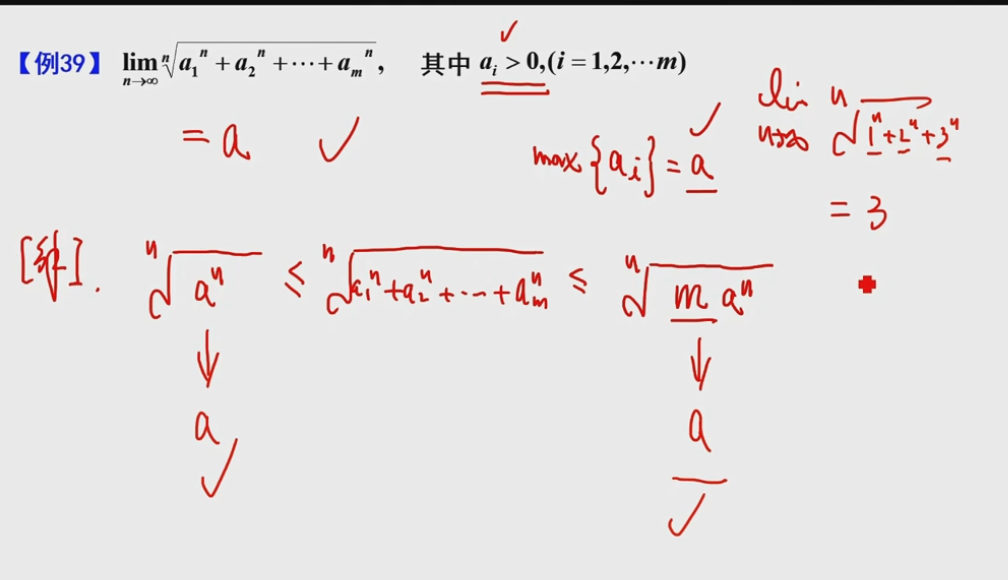 【例39】 lim_{n→∞} ⁿ√(a₁ⁿ + a₂ⁿ + ⋯ + aₘⁿ), 其中 aᵢ > 0,(i = 1,2,⋯m)
= a ✓
max{aᵢ} = a ✓
lim_{n→∞} ⁿ√(1ⁿ+2ⁿ+3ⁿ)
= 3
[解]. ⁿ√(aⁿ) ≤ ⁿ√(a₁ⁿ+a₂ⁿ+⋯+aₘⁿ) ≤ ⁿ√(m aⁿ)
↓ ↓
a a
✓ ✓